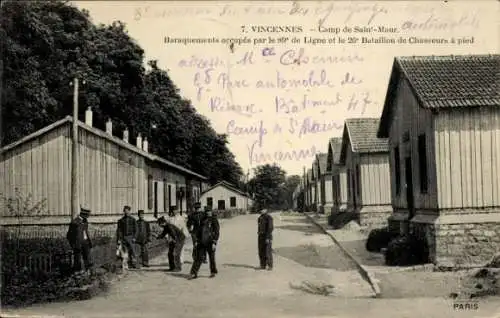 7. VINCENNES — Camp de Saint-Maur.
Baraquements occupés par le 89e de Ligne et le 26e Bataillon de Chasseurs à pied
8e Parc automobile de
Réserve Bâtiment 47
Camp de St Maur
Vincennes
PARIS